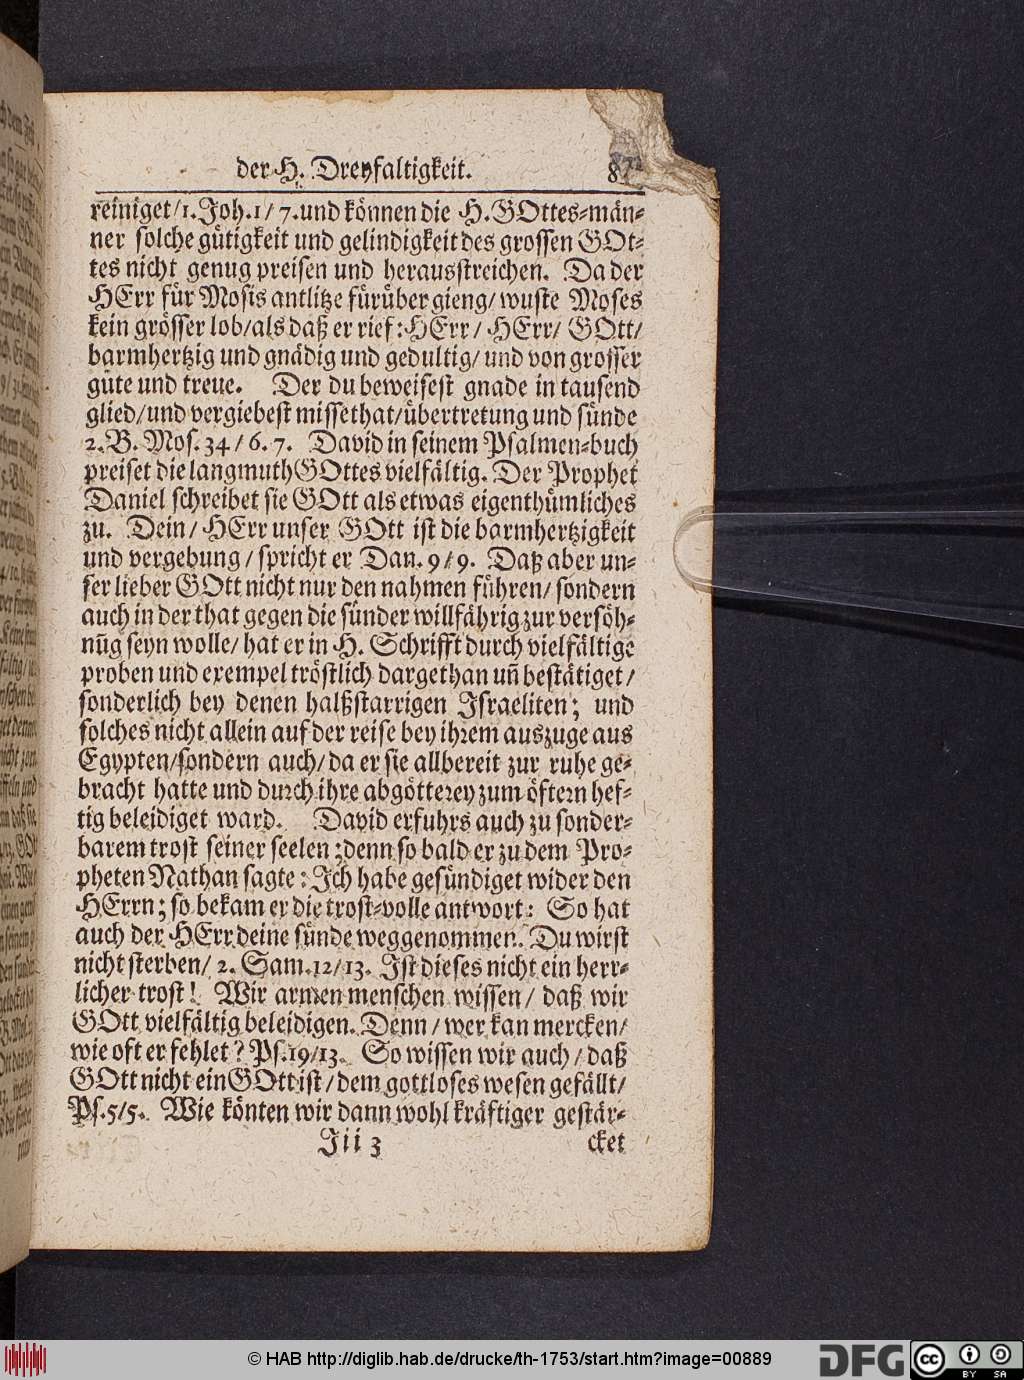 der H. Dreyfaltigkeit.
reiniget/1. Joh. 1/ 7. und können die H. GOttes-män-
ner solche gütigkeit und gelindigkeit des grossen GOt-
tes nicht genug preisen und herausstreichen. Da der
HErr für Mosis antlitze fürüber gieng/ wuste Moses
kein grösser lob/ als daß er rief: HErr/ HErr/ GOtt/
barmhertzig und gnädig und gedultig/ und von grosser
güte und treue. Der du beweisest gnade in tausend
glied/ und vergiebest missethat/ übertretung und sünde
2. B. Mos. 34/ 6. 7. David in seinem Psalmen-buch
preiset die langmuth GOttes vielfältig. Der Prophet
Daniel schreibet sie GOtt als etwas eigenthümliches
zu. Dein/ HErr unser GOtt ist die barmhertzigkeit
und vergebung/ spricht er Dan. 9/ 9. Daß aber un-
ser lieber GOtt nicht nur den nahmen führen/ sondern
auch in der that gegen die sünder willfährig zur versöh-
nũg seyn wolle/ hat er in H. Schrifft durch vielfältige
proben und exempel tröstlich dargethan uñ bestätiget/
sonderlich bey denen halßstarrigen Israeliten; und
solches nicht allein auf der reise bey ihrem auszuge aus
Egypten/ sondern auch/ da er sie allbereit zur ruhe ge-
bracht hatte und durch ihre abgötterey zum öftern hef-
tig beleidiget ward. David erfuhrs auch zu sonder-
barem trost seiner seelen; denn so bald er zu dem Pro-
pheten Nathan sagte: Ich habe gesündiget wider den
HErrn; so bekam er die trost-volle antwort: So hat
auch der HErr deine sünde weggenommen. Du wirst
nicht sterben/ 2. Sam. 12/ 13. Ist dieses nicht ein herr-
licher trost! Wir armen menschen wissen/ daß wir
GOtt vielfältig beleidigen. Denn/ wer kan mercken/
wie oft er fehlet? Ps. 19/ 13. So wissen wir auch/ daß
GOtt nicht ein GOtt ist/ dem gottloses wesen gefällt/
Ps. 5/ 5. Wie könten wir dann wohl kräftiger gestär-
Iii 3 cket
© HAB http://diglib.hab.de/drucke/th-1753/start.htm?image=00889
DFG
cc BY SA